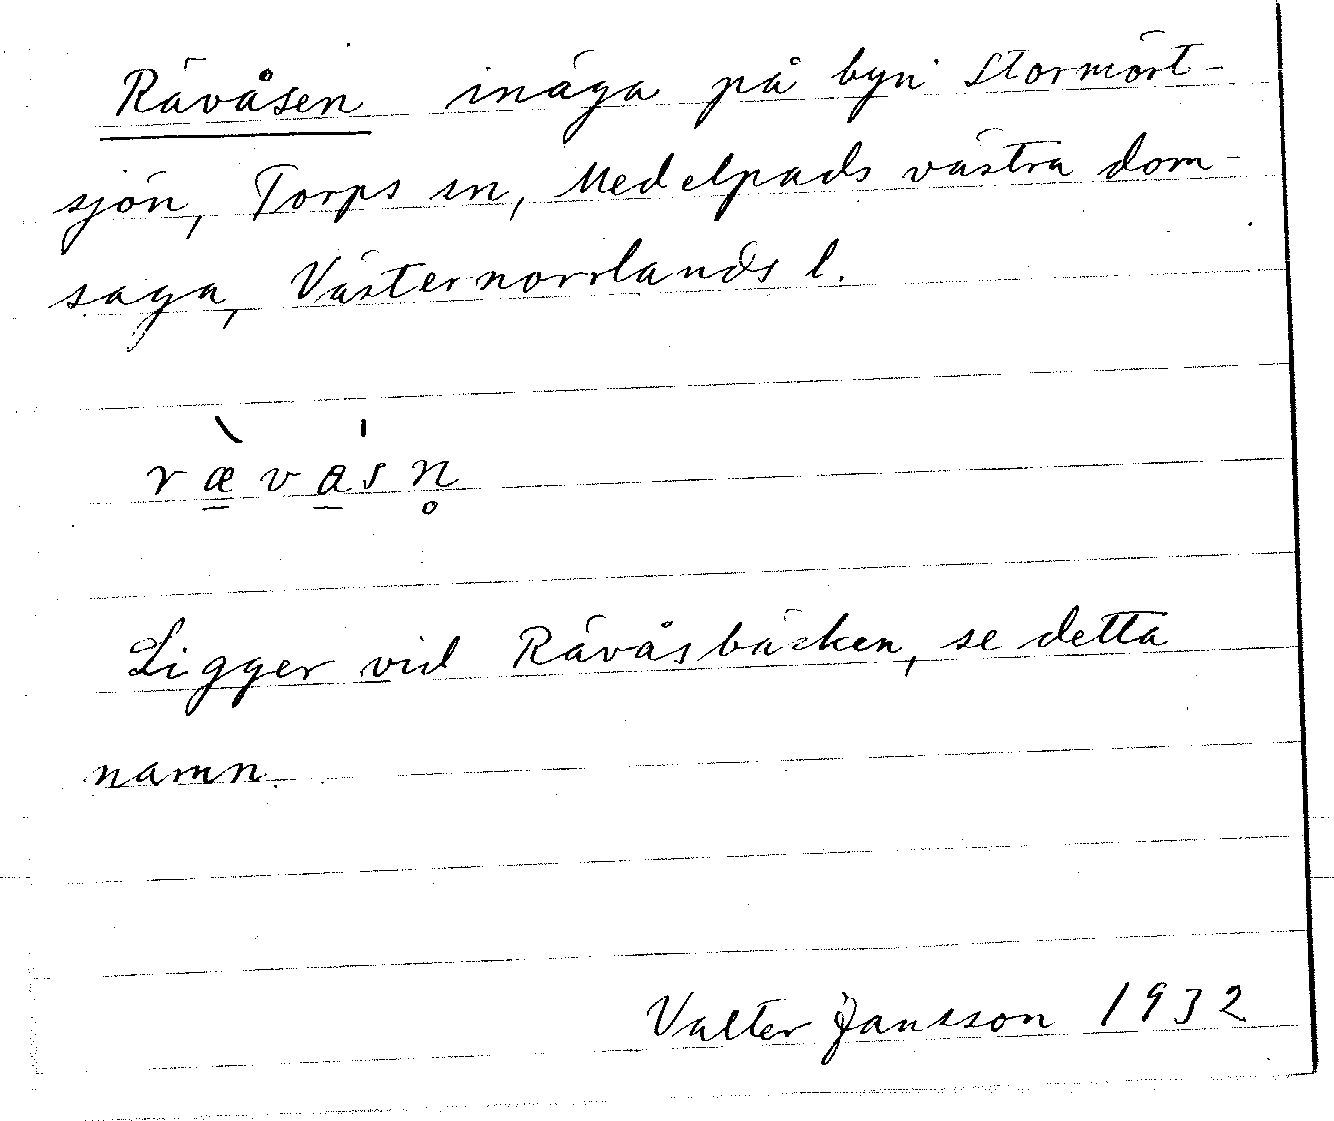 Rävåsen inäga på byn Stormört-
sjön, Torps sn, Medelpads västra dom-
saga, Västernorrlands l.
ræ̱̀va̱s̍n̥
Ligger vid Rävåsbäcken, se detta
namn.
Valter Jansson 1932